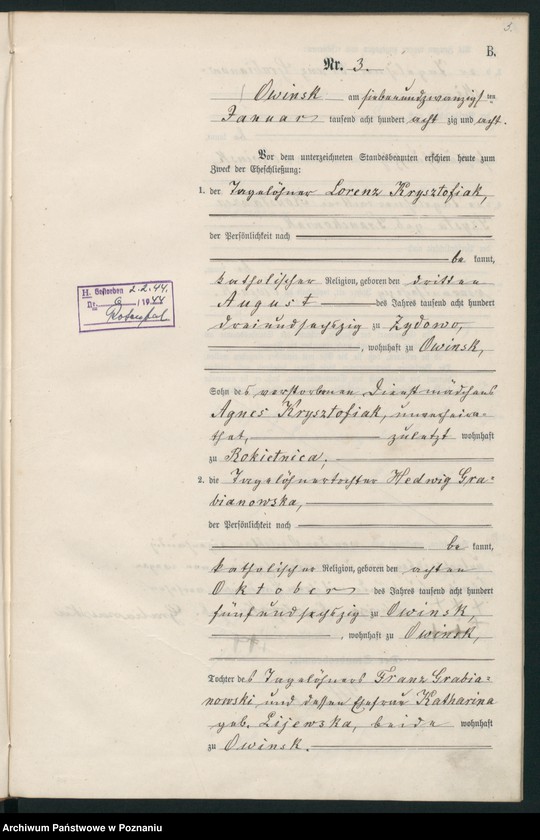 5.
B.
Nr. 3.
Owinsk am siebenundzwanzigsten
Januar tausend acht hundert acht zig und acht.
Vor dem unterzeichneten Standesbeamten erschien heute zum
Zweck der Eheschließung:
1. der Tagelöhner Lorenz Krysztofiak,
der Persönlichkeit nach
be kannt,
katholischer Religion, geboren den dritten
August des Jahres tausend acht hundert
dreiundsechszig zu Zydowo,
, wohnhaft zu Owinsk,
H. Gestorben 2.2.44.
Nr. 6 / 1944
Sohn des verstorbenen Dienstmädchens
Agnes Krysztofiak, unverheira=
thet, zuletzt wohnhaft
zu Rokietnica,
2. die Tagelöhnertochter Hedwig Gra=
bianowska,
der Persönlichkeit nach
be kannt,
katholischer Religion, geboren den achten
Oktober des Jahres tausend acht hundert
fünfundsechszig zu Owinsk,
, wohnhaft zu Owinsk,
Tochter des Tagelöhners Franz Grabia=
nowski und dessen Ehefrau Katharina
geb. Lijewska, beide wohnhaft
zu Owinsk.
Archiwum Państwowe w Poznaniu